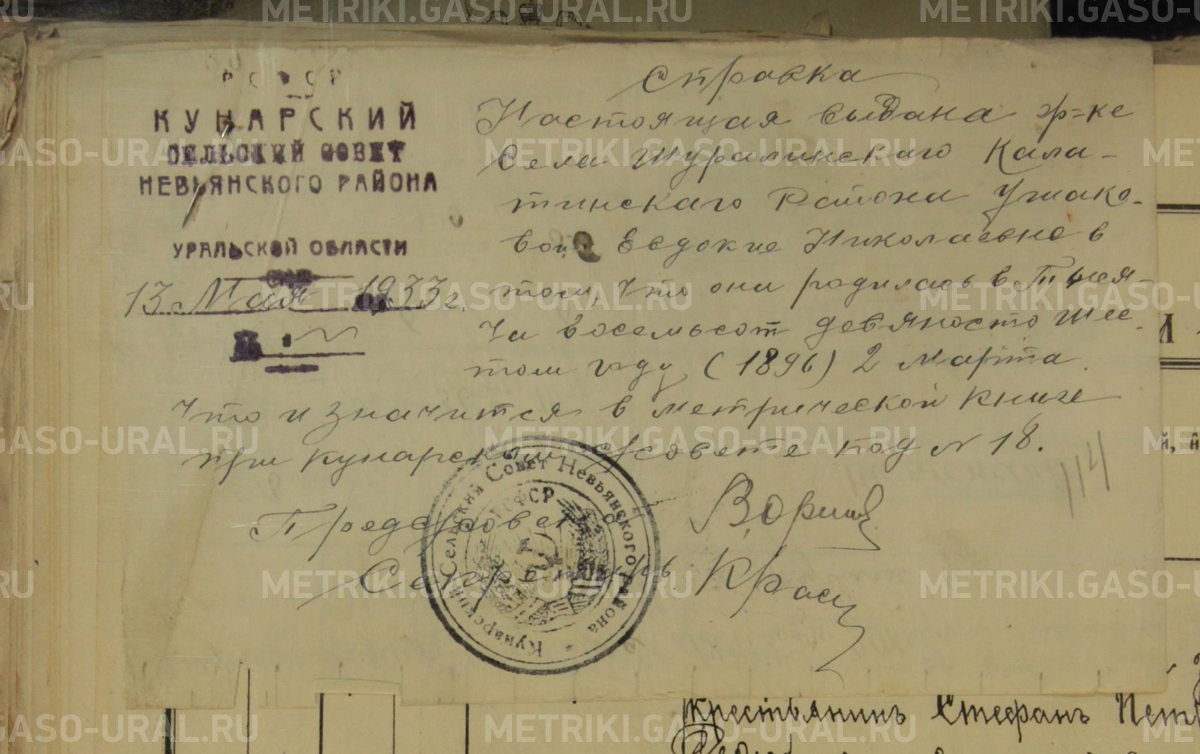 РСФСР
КУНАРСКИЙ
СЕЛЬСКИЙ СОВЕТ
НЕВЬЯНСКОГО РАЙОНА
УРАЛЬСКОЙ ОБЛАСТИ
13 Мая 1933 г.
№
Справка
Настоящая выдана гр-ке
Села Шуралинскаго Кала-
тинскаго Района Ушако-
вой Евдокие Николаевне в
том, что она родилась в Тыся-
ча восемьсот девяносто шес-
том году (1896) 2 Марта.
Что и значится в метрической книге
при Кунарском с/совете под N 18.
114
Предсовета
Секретарь
Кунарский Сельский Совет Невьянского района *
РСФСР
Крестьянинъ Стефанъ Петр
METRIKI.GASO-URAL.RU